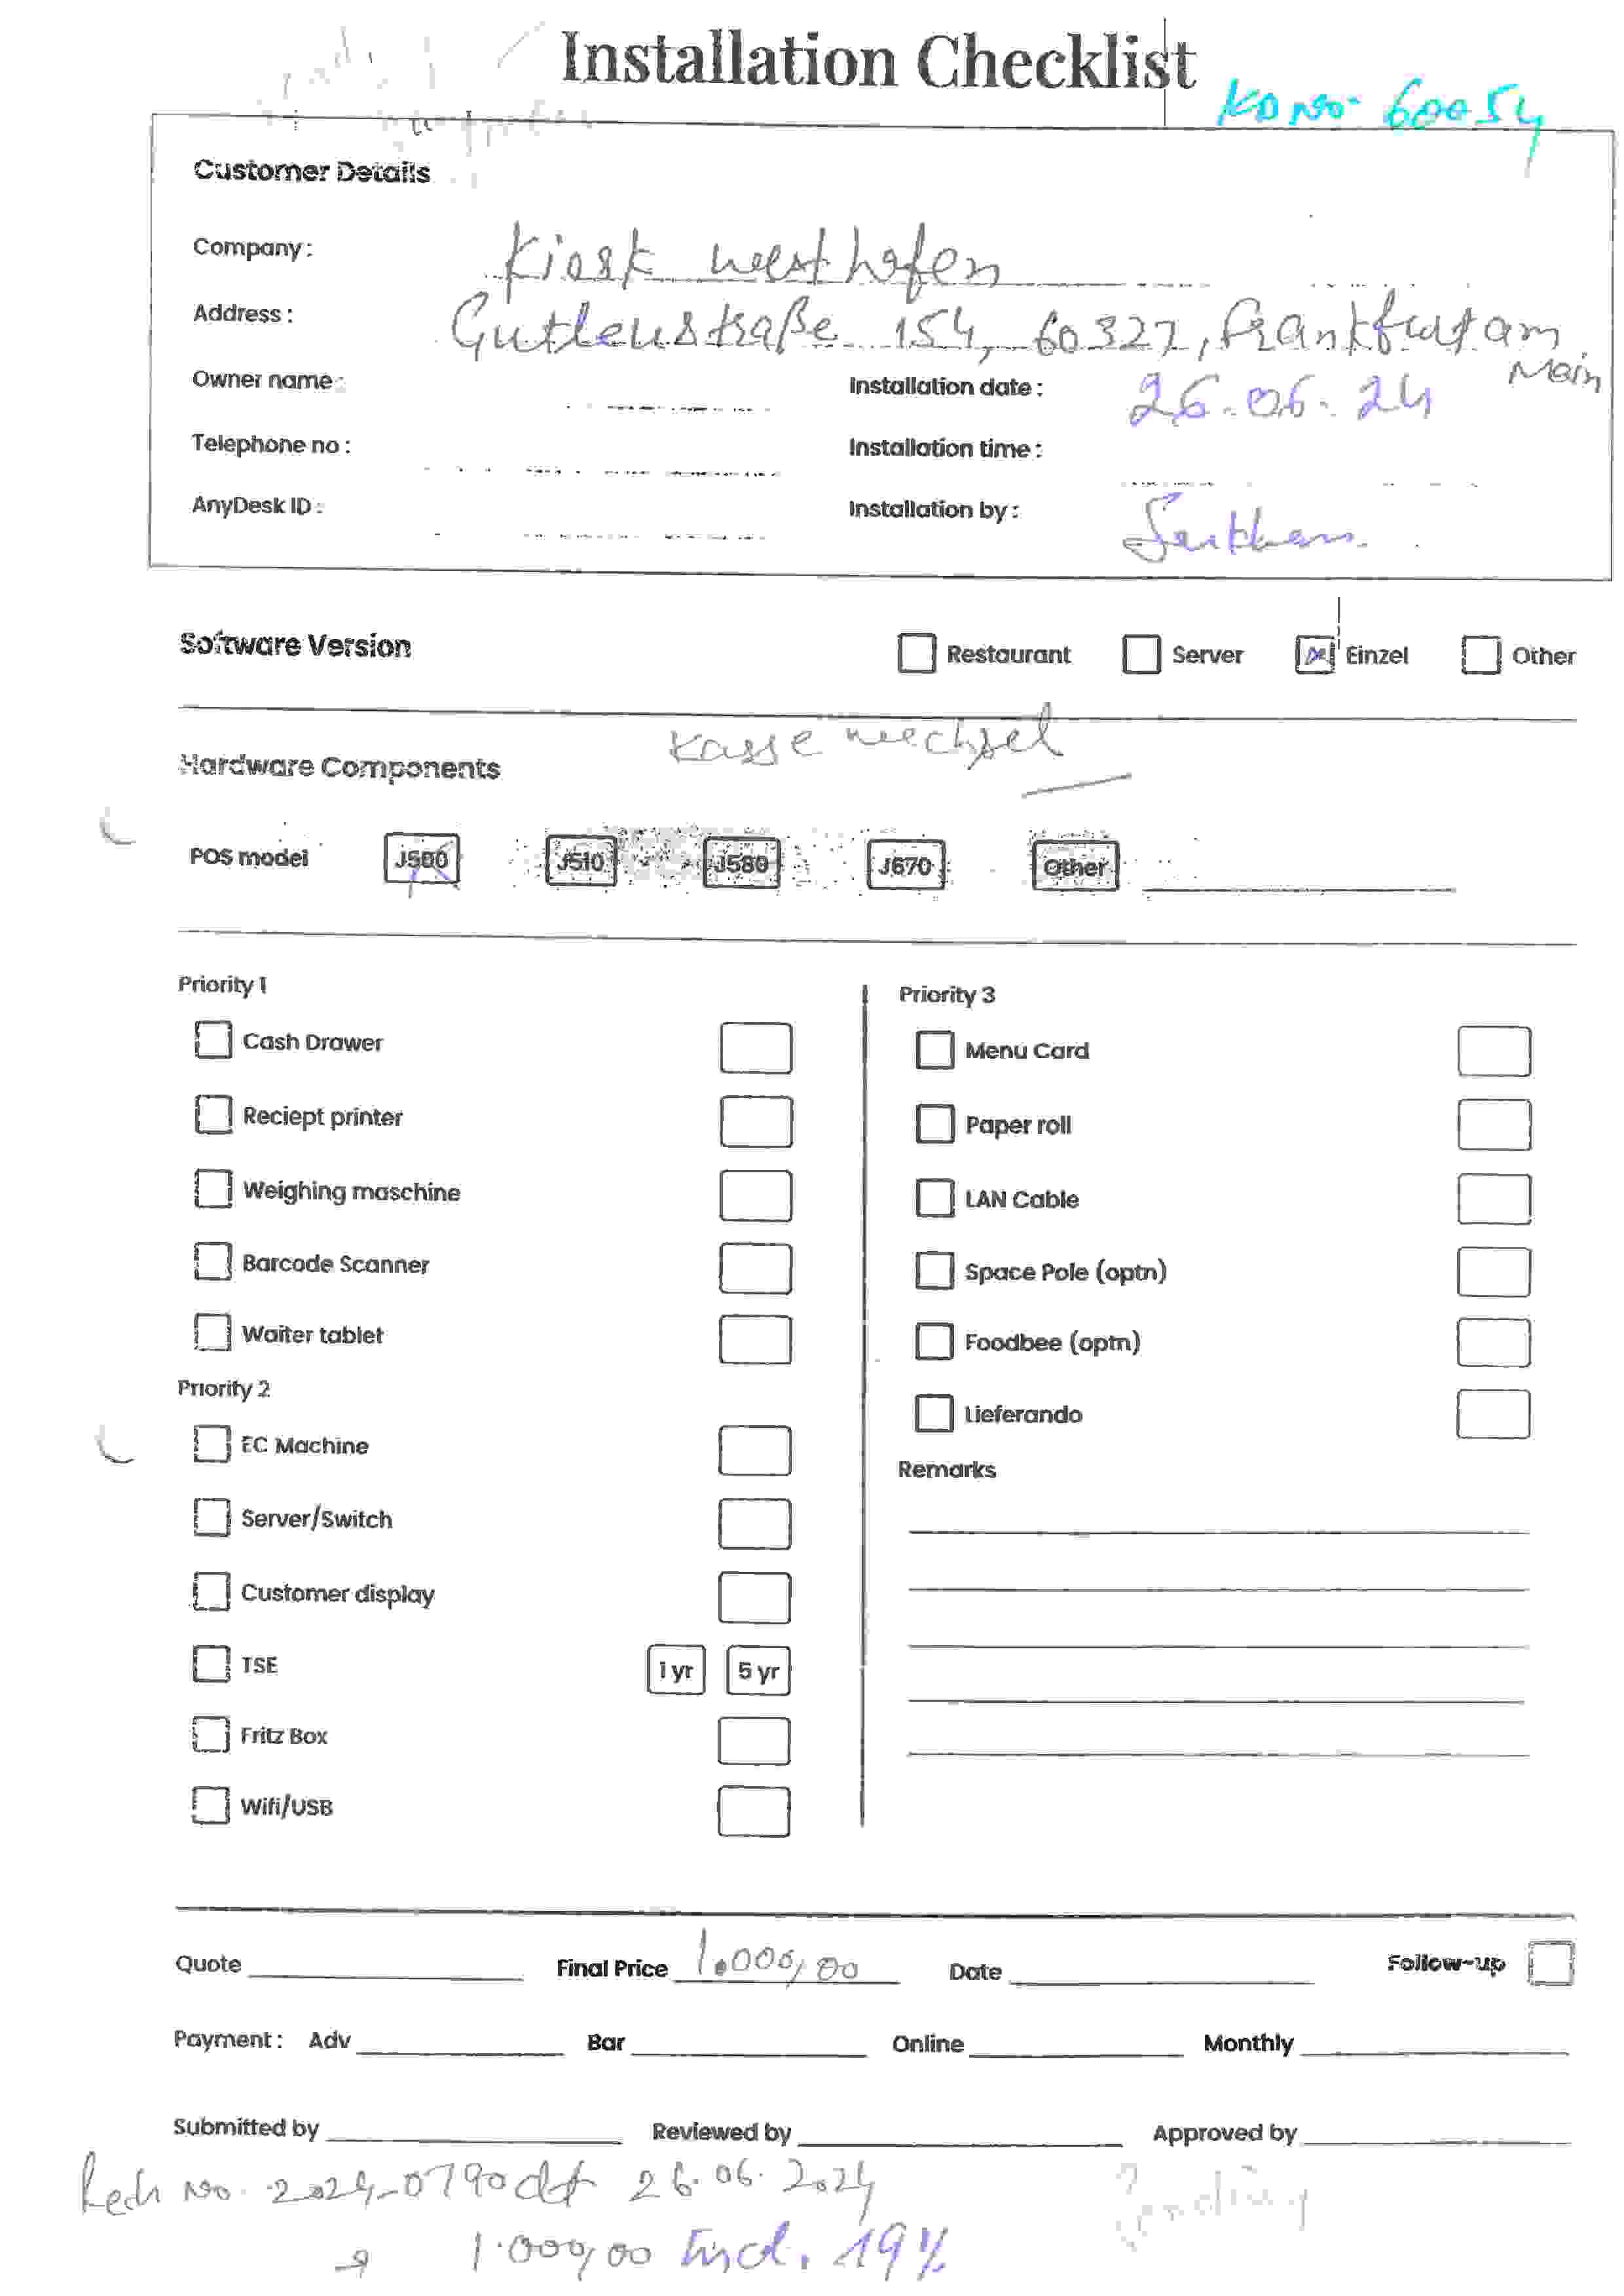 Installation Checklist
KD No. 60054
Customer Details
Company: Kiosk westhafen
Address: Gutleutstraße 154, 60327, Frankfurt am Main
Owner name: Installation date: 26.06.24
Telephone no: Installation time:
AnyDesk ID: Installation by:
Software Version Restaurant Server Einzel Other
Kasse wechsel
Hardware Components
POS model J500 J510 J580 J670 Other
Priority 1
Cash Drawer
Reciept printer
Weighing maschine
Barcode Scanner
Waiter tablet
Priority 2
EC Machine
Server/Switch
Customer display
TSE 1 yr 5 yr
Fritz Box
Wifi/USB
Priority 3
Menu Card
Paper roll
LAN Cable
Space Pole (optn)
Foodbee (optn)
Lieferando
Remarks
Quote Final Price 1.000,00 Date Follow-up
Payment: Adv Bar Online Monthly
Submitted by Reviewed by Approved by
Rech No. 2024-0790 dt 26.06.2024
Pending
→ 1.000,00 Incl. 19%